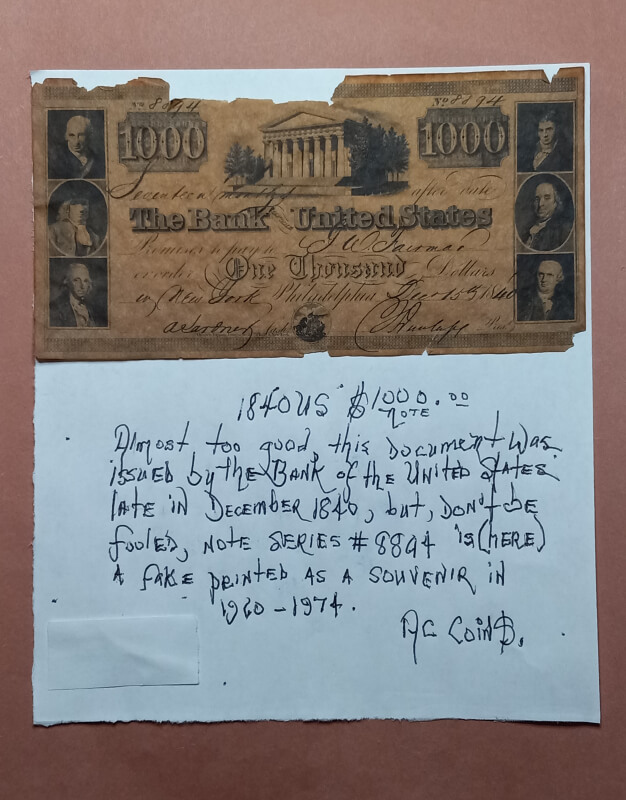 No 8894 No 8894
1000 1000
Seventeen months after date
The Bank United States
Promises to pay to
or order One Thousand Dollars
in New York Philadelphia Decr 15th 1840
1840 US $1000.00
NOTE
Almost too good, this document was
issued by the Bank of the United States
late in December 1840, but, don't be
fooled, note series #8894 is (here)
a fake printed as a souvenir in
1960-1974.
AC Coin$.